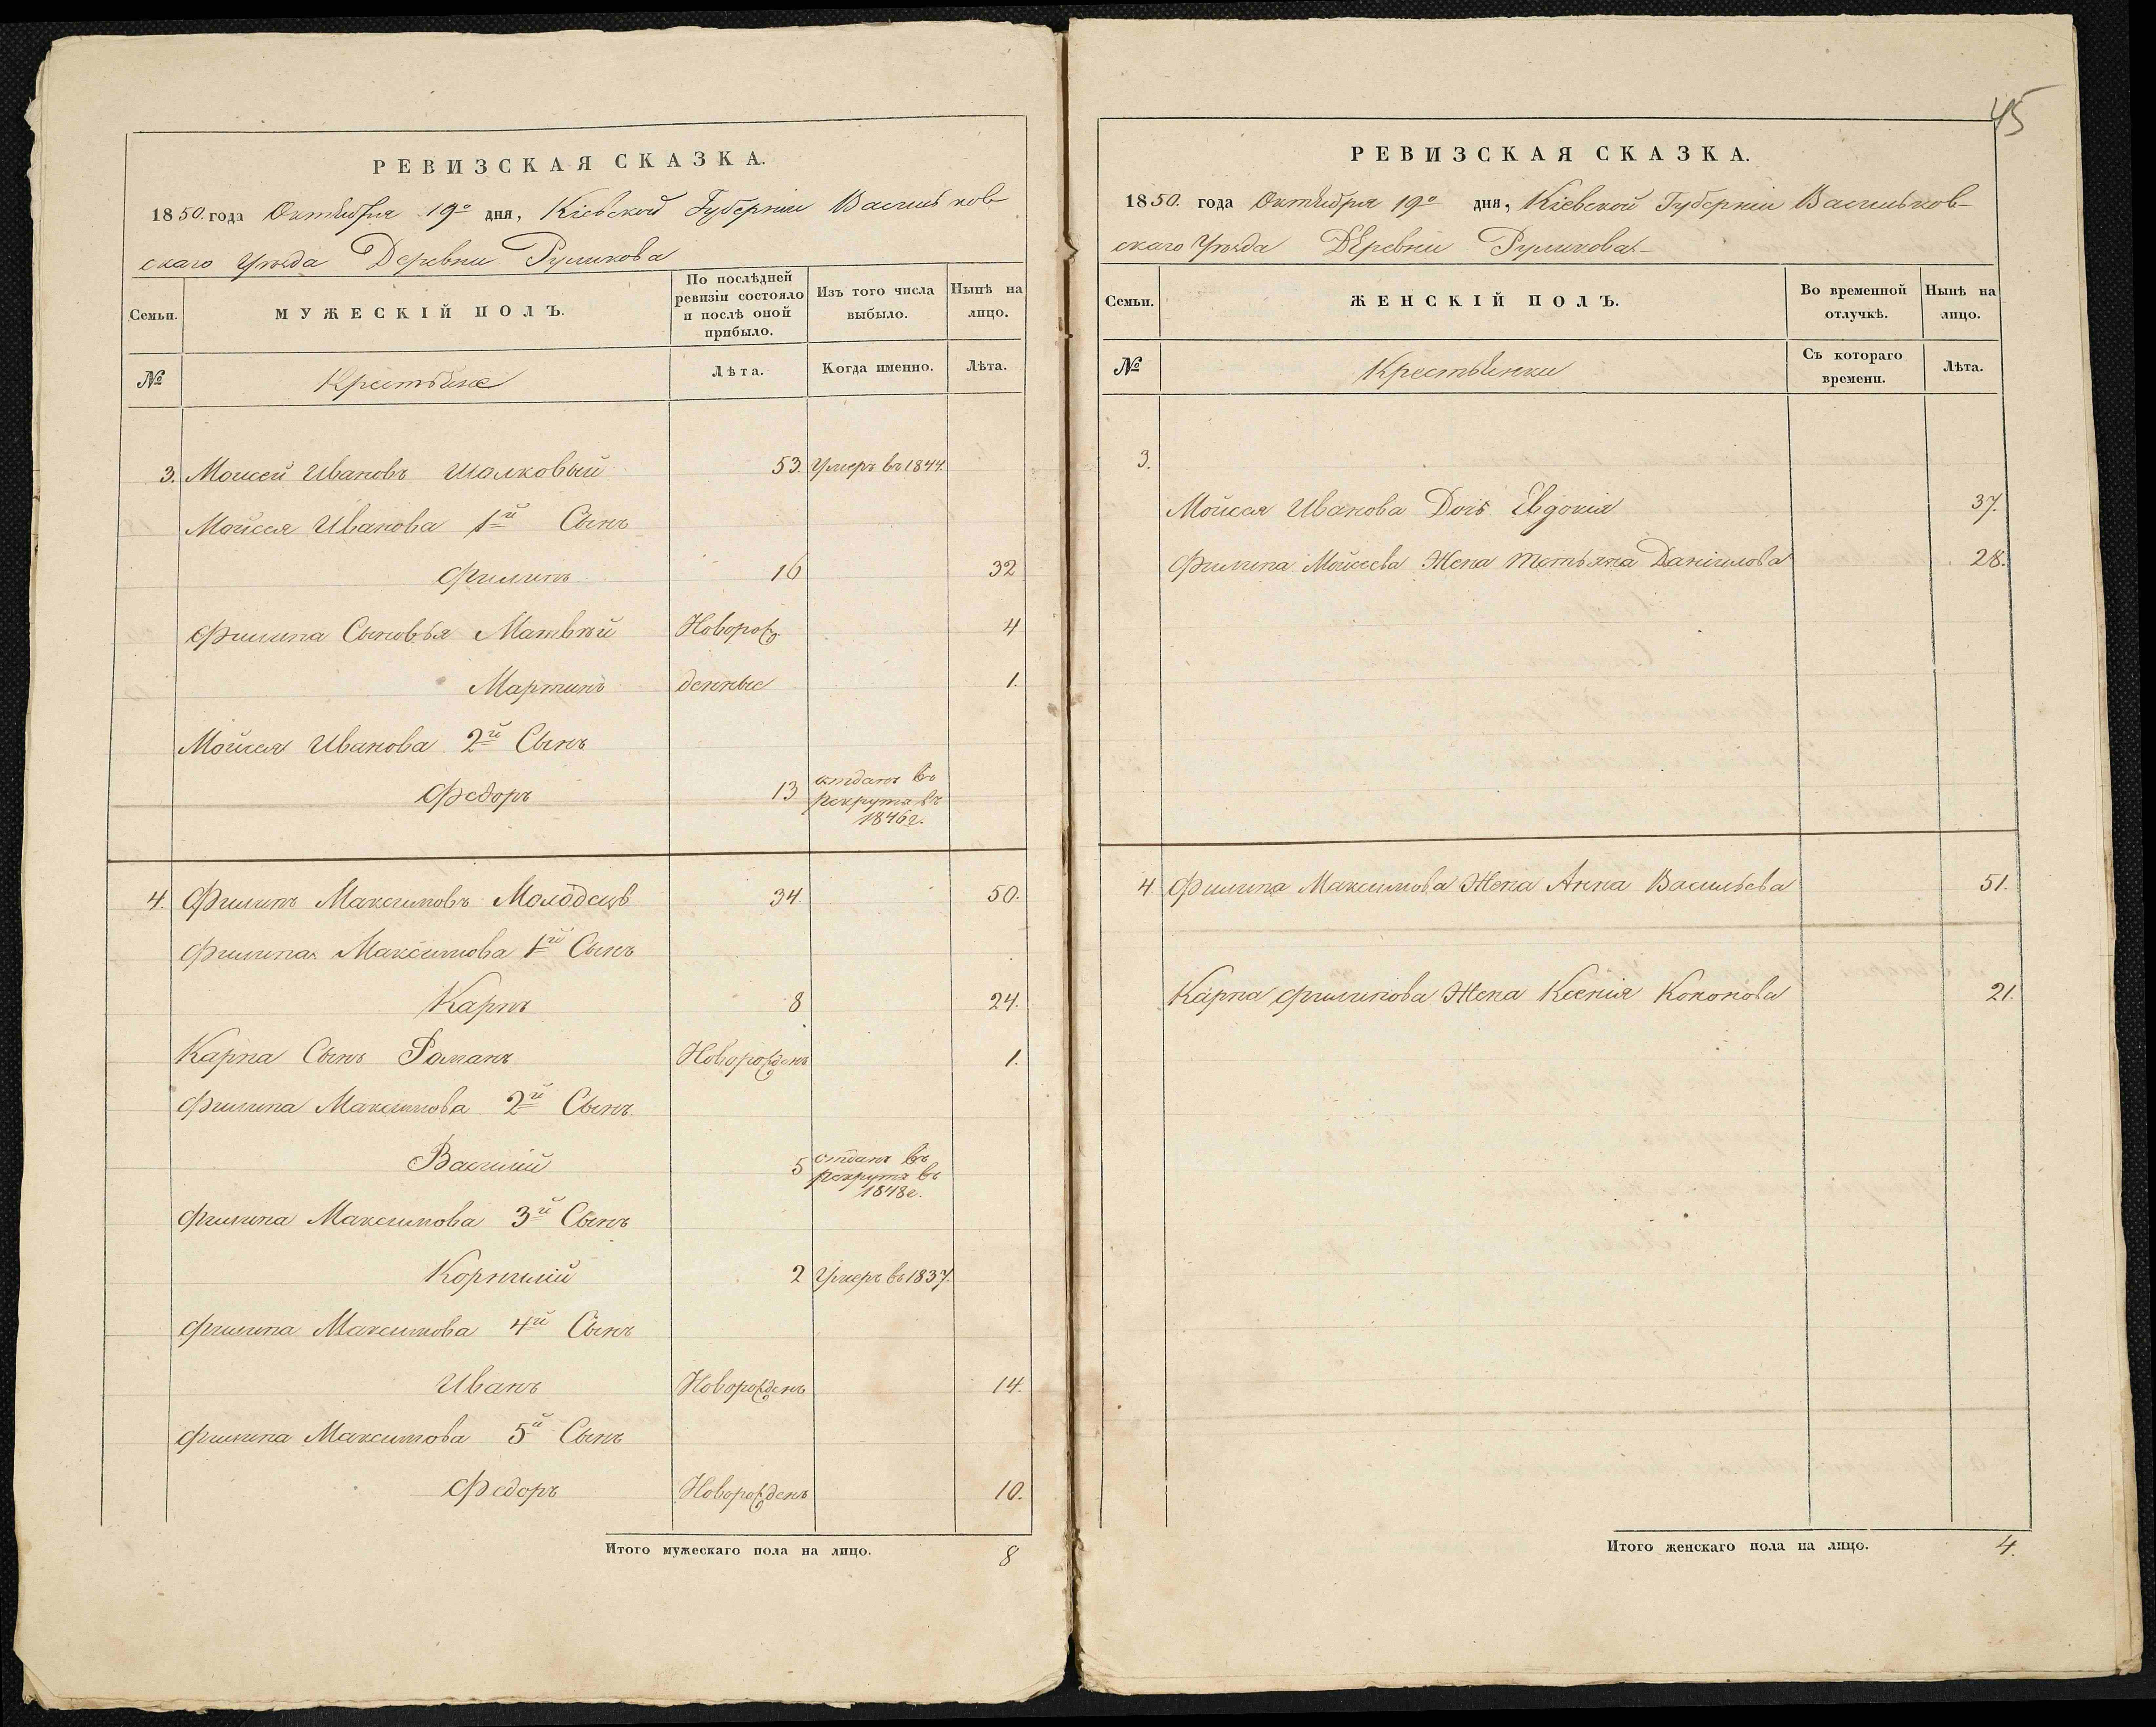 РЕВИЗСКАЯ СКАЗКА.
1850. года Октября 19го дня, Кіевской Губерніи Васильков-
скаго Уѣзда Деревни Руликова
Семьи. МУЖЕСКІЙ ПОЛЪ. По послѣдней ревизіи состояло и послѣ оной прибыло. Изъ того числа выбыло. Нынѣ на лицо.
№ Крестьяне Лѣта. Когда именно. Лѣта.
3. Моисей Ивановъ Шолковый 53. Умеръ въ 1844.
Мойсея Иванова 1й Сынъ
Филипъ 16 32
Филипа Сыновья Матвѣй Новорож 4
Мартинъ денные 1.
Мойсея Иванова 2й Сынъ
Федоръ 13 отданъ въ
рекрута въ
1846 г.
4. Филипъ Максимовъ Молодецъ 34. 50.
Филипа Максимова 1й Сынъ
Карпъ 8 24.
Карпа Сынъ Романъ Новорожденъ 1.
Филипа Максимова 2й Сынъ
Василій 5 отданъ въ
рекрута въ
1848 г.
Филипа Максимова 3й Сынъ
Корнилій 2 Умеръ въ 1837.
Филипа Максимова 4й Сынъ
Иванъ Новорожденъ 14.
Филипа Максимова 5й Сынъ
Федоръ Новорожденъ 10.
Итого мужескаго пола на лицо. 8
45
РЕВИЗСКАЯ СКАЗКА.
1850. года Октября 19го дня, Кіевской Губерніи Васильков-
скаго Уѣзда Деревни Руликова.
Семьи. ЖЕНСКІЙ ПОЛЪ. Во временной отлучкѣ. Нынѣ на лицо.
№ Крестьянки Съ котораго времени. Лѣта.
3.
Мойсея Иванова Дочь Евдокія 37.
Филипа Мойсеева Жена Тетьяна Данилова 28.
4. Филипа Максимова Жена Анна Васильева 51.
Карпа Филипова Жена Ксенія Кононова 21.
Итого женскаго пола на лицо. 4.